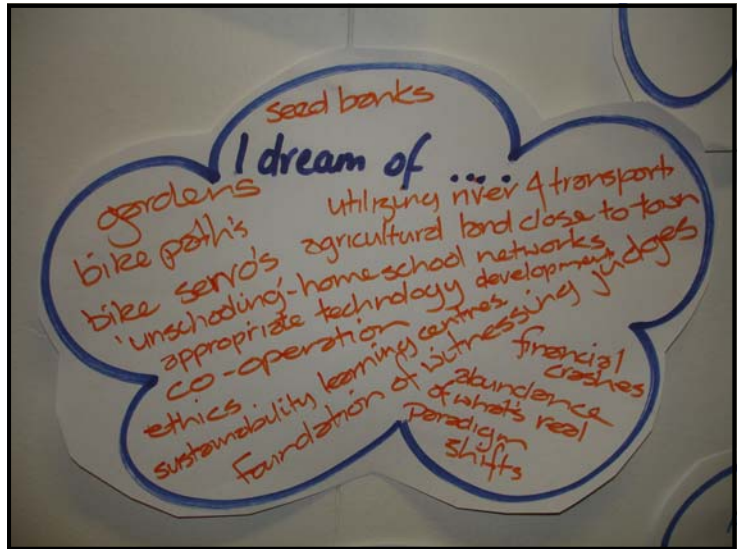 seed banks
I dream of ....
gardens
bike path's
bike servo's
utilizing river 4 transport
agricultural land close to town
'unschooling-homeschool networks
appropriate technology development
co-operation
ethics
sustainability learning centres
foundation of witnessing judges
financial
crashes
abundance
of what's real
paradigm
shifts